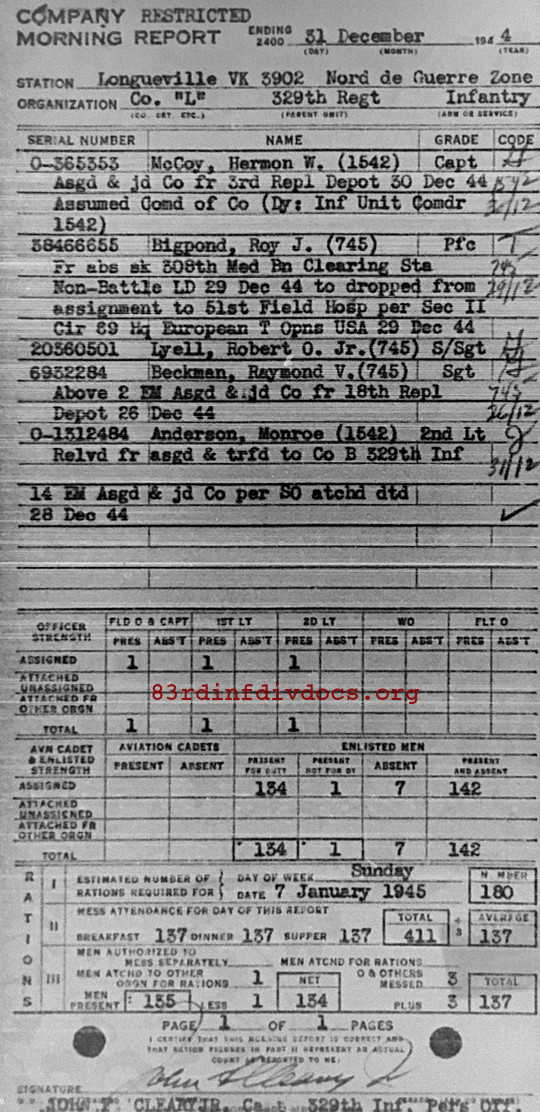 COMPANY RESTRICTED
MORNING REPORT ENDING 2400 31 December 1944
(DAY) (MONTH) (YEAR)
STATION Longueville VK 3902 Nord de Guerre Zone
ORGANIZATION Co. "L" 329th Regt Infantry
(CO. DET. ETC.) (PARENT UNIT) (ARM OR SERVICE)
SERIAL NUMBER NAME GRADE CODE
O-365353 McCoy, Hermon W. (1542) Capt
Asgd & jd Co fr 3rd Repl Depot 30 Dec 44
Assumed Comd of Co (Dy: Inf Unit Comdr 31/12
1542)
38466655 Bigpond, Roy J. (745) Pfc T
Fr abs sk 308th Med Bn Clearing Sta 745
Non-Battle LD 29 Dec 44 to dropped from 29/12
assignment to 51st Field Hosp per Sec II
Cir 69 Hq European T Opns USA 29 Dec 44
20360501 Lyell, Robert O. Jr.(745) S/Sgt
6932284 Beckman, Raymond V.(745) Sgt
Above 2 EM Asgd & jd Co fr 18th Repl 745
Depot 26 Dec 44 26/12
O-1312484 Anderson, Monroe (1542) 2nd Lt
Relvd fr asgd & trfd to Co B 329th Inf 31/12
14 EM Asgd & jd Co per SO atchd dtd
28 Dec 44
OFFICER STRENGTH FLD O & CAPT 1ST LT 2D LT WO FLT O
PRES ABS'T PRES ABS'T PRES ABS'T PRES ABS'T PRES ABS'T
ASSIGNED 1 1 1
ATTACHED UNASSIGNED
ATTACHED FR OTHER ORGN
83rdinfdivdocs.org
TOTAL 1 1 1
AVN CADET & ENLISTED STRENGTH AVIATION CADETS ENLISTED MEN
PRESENT ABSENT PRESENT FOR DUTY PRESENT NOT FOR DY ABSENT PRESENT AND ABSENT
ASSIGNED 134 1 7 142
ATTACHED UNASSIGNED
ATTACHED FR OTHER ORGN
TOTAL 134 1 7 142
RATIONS
I ESTIMATED NUMBER OF RATIONS REQUIRED FOR DAY OF WEEK Sunday NUMBER
DATE 7 January 1945 180
II MESS ATTENDANCE FOR DAY OF THIS REPORT TOTAL ÷ 3 AVERAGE
BREAKFAST 137 DINNER 137 SUPPER 137 411 137
III MEN AUTHORIZED TO MESS SEPARATELY MEN ATCHD FOR RATIONS
MEN ATCHD TO OTHER ORGN FOR RATIONS 1 NET O & OTHERS MESSED 3 TOTAL
MEN PRESENT 135 LESS 1 134 PLUS 3 137
PAGE 1 OF 1 PAGES
I CERTIFY THAT THIS MORNING REPORT IS CORRECT AND
THAT RATION FIGURES IN PART II REPRESENT AN ACTUAL
COUNT AS REPORTED TO ME:
SIGNATURE
JOHN F. CLEARY JR. Capt 329th Inf. Pers Off.